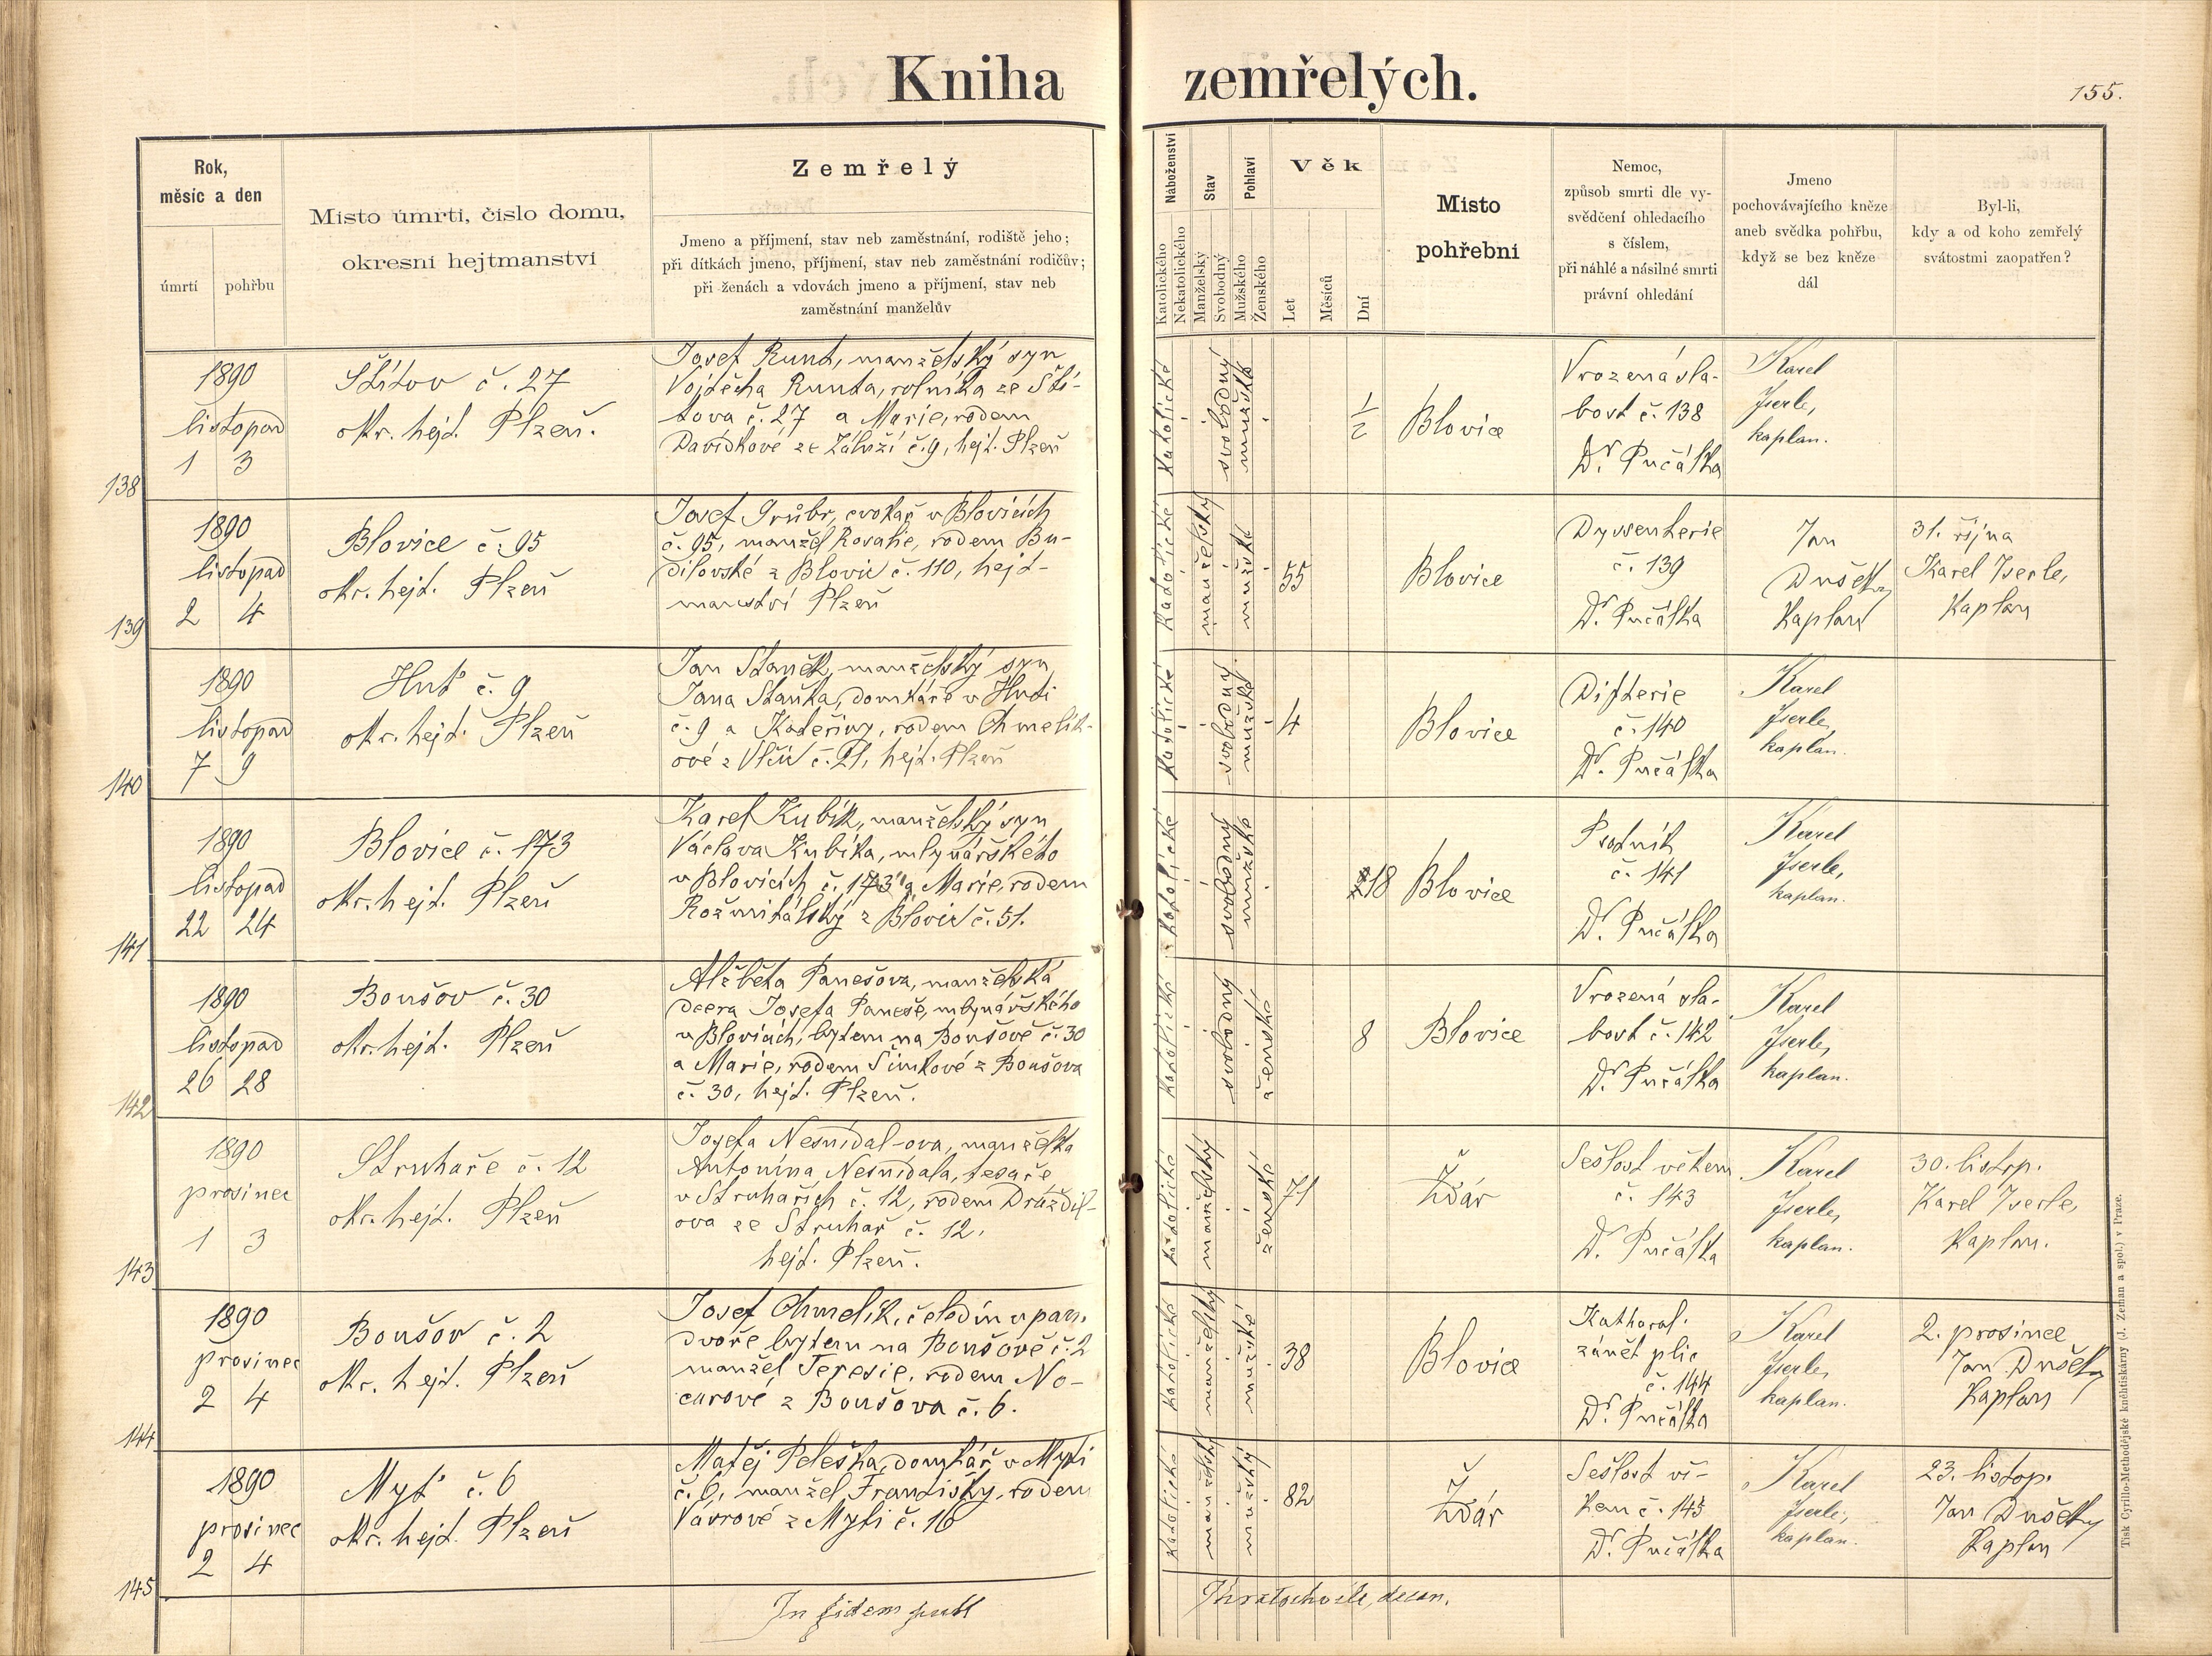 Kniha zemřelých.
155.
Rok,
měsíc a den
úmrtí
pohřbu
Místo úmrtí, číslo domu,
okresní hejtmanství
Zemřelý
Jmeno a příjmení, stav neb zaměstnání, rodiště jeho;
při dítkách jmeno, příjmení, stav neb zaměstnání rodičův;
při ženách a vdovách jmeno a příjmení, stav neb
zaměstnání manželův
Náboženství
Katolického
Nekatolického
Stav
Manželský
Svobodný
Pohlaví
Mužského
Ženského
Věk
Let
Měsíců
Dní
Místo
pohřební
Nemoc,
způsob smrti dle vy-
svědčení ohledacího
s číslem,
při náhlé a násilné smrti
právní ohledání
Jmeno
pochovávajícího kněze
aneb svědka pohřbu,
když se bez kněze
dál
Byl-li,
kdy a od koho zemřelý
svátostmi zaopatřen?
138
1890
listopad
1 3
Štítov č. 27
okr. hejt. Plzeň.
Josef Runt, manželský syn
Vojtěcha Runta, rolníka ze Ští-
tova č. 27 a Marie, rodem
Davídkové ze Záluží č. 9, hejt. Plzeň
katolické
svobodný
mužské
1/2
Blovice
Vrozená sla-
bost č. 138
Dr. Pučálka
Karel
Jserle,
kaplan.
139
1890
listopad
2 4
Blovice č. 95
okr. hejt. Plzeň
Josef Grübr, cvokař v Blovicích
č. 95, manžel Rosalie, rodem Bu-
dilovské z Blovic č. 110, hejt-
manství Plzeň
katolické
manželský
mužské
55
Blovice
Dyssenterie
č. 139
Dr. Pučálka
Jan
Dušek,
Kaplan
31. října
Karel Jserle,
Kaplan
140
1890
listopad
7 9
Huť č. 9
okr. hejt. Plzeň
Jan Staněk, manželský syn
Jana Staňka, domkáře v Huti
č. 9 a Kateřiny, rodem Chmelík-
ové z Vlčic č. 21, hejt. Plzeň
katolické
svobodný
mužské
4
Blovice
Difterie
č. 140
Dr. Pučálka
Karel
Jserle,
kaplan.
141
1890
listopad
22 24
Blovice č. 173
okr. hejt. Plzeň
Karel Kubík, manželský syn
Václava Kubíka, mlynářského
v Blovicích č. 173 a Marie, rodem
Rožmitálský z Blovic č. 51.
katolické
svobodný
mužské
18
Blovice
Psotník
č. 141
Dr. Pučálka
Karel
Jserle,
kaplan.
142
1890
listopad
26 28
Boušov č. 30
okr. hejt. Plzeň
Alžběta Panešova, manželská
dcera Josefa Paneše, mlynářského
v Blovicích, bytem na Boušově č. 30
a Marie, rodem Šimkové z Boušova
č. 30, hejt. Plzeň.
katolické
svobodný
ženské
8
Blovice
Vrozená sla-
bost č. 142
Dr. Pučálka
Karel
Jserle,
kaplan.
143
1890
prosinec
1 3
Struhaře č. 12
okr. hejt. Plzeň
Josefa Nesnídal-ova, manželka
Antonína Nesnídala, tesaře
v Struhařích č. 12, rodem Draždil-
ova ze Struhař č. 12,
hejt. Plzeň.
katolické
manželský
ženské
71
Ždár
Sešlost věkem
č. 143
Dr. Pučálka
Karel
Jserle,
kaplan.
30. listop.
Karel Jserle,
Kaplan.
144
1890
prosinec
2 4
Boušov č. 2
okr. hejt. Plzeň
Josef Chmelík, čeledín v pan.
dvoře bytem na Boušově č. 2
manžel Teresie, rodem No-
curové z Boušova č. 6.
katolické
manželský
mužské
38
Blovice
Katharal.
zánět plic
č. 144
Dr. Pučálka
Karel
Jserle,
kaplan.
2. prosince
Jan Dušek,
Kaplan
145
1890
prosinec
2 4
Myť č. 6
okr. hejt. Plzeň
Matěj Peleška, domkář v Myti
č. 6, manžel Františky, rodem
Vávrové z Myti č. 16
katolické
manželský
mužský
82
Ždár
Sešlost vě-
kem č. 145
Dr. Pučálka
Karel
Jserle,
kaplan.
23. listop.
Jan Dušek,
Kaplan
In fidem publ
Kratochvíle, decan.
Tisk Cyrillo-Methodějské knihtiskárny (J. Zeman a spol.) v Praze.